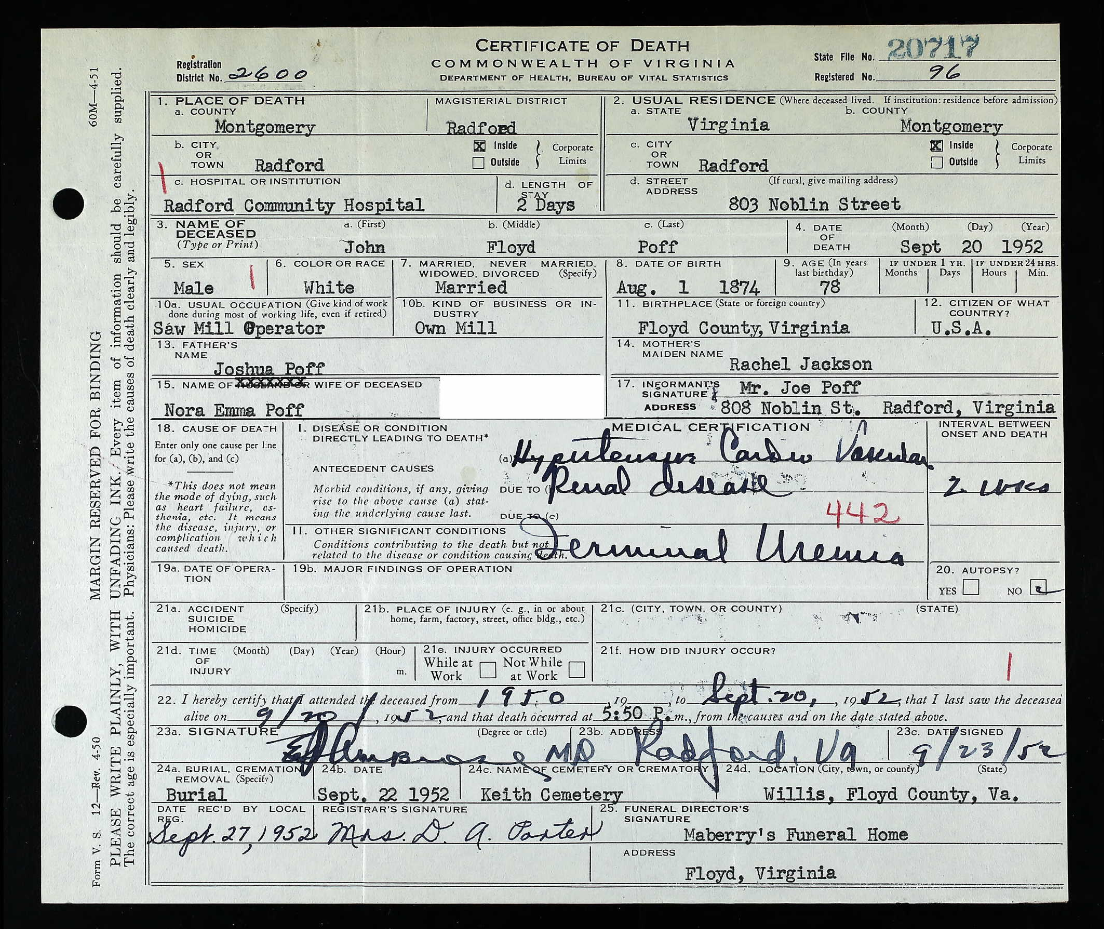 CERTIFICATE OF DEATH
COMMONWEALTH OF VIRGINIA
DEPARTMENT OF HEALTH, BUREAU OF VITAL STATISTICS
Registration District No. 2600
State File No. 20717
Registered No. 96
60M—4-51
MARGIN RESERVED FOR BINDING
Form V. S. 12—Rev. 4-50
PLEASE WRITE PLAINLY, WITH UNFADING INK. Every item of information should be carefully supplied.
The correct age is especially important. Physicians: Please write the causes of death clearly and legibly.
1. PLACE OF DEATH
a. COUNTY
Montgomery
MAGISTERIAL DISTRICT
Radford
2. USUAL RESIDENCE (Where deceased lived. If institution: residence before admission)
a. STATE
Virginia
b. COUNTY
Montgomery
b. CITY OR TOWN Radford
Inside
Outside
Corporate Limits
c. CITY OR TOWN Radford
Inside
Outside
Corporate Limits
c. HOSPITAL OR INSTITUTION
Radford Community Hospital
d. LENGTH OF STAY
2 Days
d. STREET ADDRESS (If rural, give mailing address)
803 Noblin Street
3. NAME OF DECEASED
(Type or Print)
a. (First)
John
b. (Middle)
Floyd
c. (Last)
Poff
4. DATE OF DEATH
(Month) (Day) (Year)
Sept 20 1952
5. SEX
Male
6. COLOR OR RACE
White
7. MARRIED, NEVER MARRIED, WIDOWED, DIVORCED (Specify)
Married
8. DATE OF BIRTH
Aug. 1 1874
9. AGE (In years last birthday)
78
IF UNDER 1 YR.
Months Days
IF UNDER 24 HRS.
Hours Min.
10a. USUAL OCCUPATION (Give kind of work done during most of working life, even if retired)
Saw Mill Operator
10b. KIND OF BUSINESS OR INDUSTRY
Own Mill
11. BIRTHPLACE (State or foreign country)
Floyd County, Virginia
12. CITIZEN OF WHAT COUNTRY?
U.S.A.
13. FATHER'S NAME
Joshua Poff
14. MOTHER'S MAIDEN NAME
Rachel Jackson
15. NAME OF WIFE OF DECEASED
Nora Emma Poff
17. INFORMANT'S SIGNATURE Mr. Joe Poff
ADDRESS 808 Noblin St. Radford, Virginia
18. CAUSE OF DEATH
Enter only one cause per line for (a), (b), and (c)
*This does not mean the mode of dying, such as heart failure, esthenia, etc. It means the disease, injury, or complication which caused death.
MEDICAL CERTIFICATION
INTERVAL BETWEEN ONSET AND DEATH
I. DISEASE OR CONDITION DIRECTLY LEADING TO DEATH*
(a) Hypertensive Cardio Vascular
ANTECEDENT CAUSES
Morbid conditions, if any, giving rise to the above cause (a) stating the underlying cause last.
DUE TO (
Renal disease
2 wks
DUE TO (c)
442
II. OTHER SIGNIFICANT CONDITIONS
Conditions contributing to the death but not related to the disease or condition causing death.
Terminal Uremia
19a. DATE OF OPERATION
19b. MAJOR FINDINGS OF OPERATION
20. AUTOPSY?
YES NO
21a. ACCIDENT SUICIDE HOMICIDE (Specify)
21b. PLACE OF INJURY (e. g., in or about home, farm, factory, street, office bldg., etc.)
21c. (CITY, TOWN, OR COUNTY) (STATE)
21d. TIME OF INJURY (Month) (Day) (Year) (Hour) m.
21e. INJURY OCCURRED
While at Work Not While at Work
21f. HOW DID INJURY OCCUR?
22. I hereby certify that I attended the deceased from 1950, 19 , to Sept. 20, 1952, that I last saw the deceased
alive on 9/20/, 1952, and that death occurred at 5:50 P. m., from the causes and on the date stated above.
23a. SIGNATURE (Degree or title)
MD
23b. ADDRESS
Radford, Va
23c. DATE SIGNED
9/23/52
24a. BURIAL, CREMATION REMOVAL (Specify)
Burial
24b. DATE
Sept. 22 1952
24c. NAME OF CEMETERY OR CREMATORY
Keith Cemetery
24d. LOCATION (City, town, or county) (State)
Willis, Floyd County, Va.
DATE REC'D BY LOCAL REG.
Sept. 27, 1952
REGISTRAR'S SIGNATURE
Mrs. D. A. Porter
25. FUNERAL DIRECTOR'S SIGNATURE
Maberry's Funeral Home
ADDRESS
Floyd, Virginia